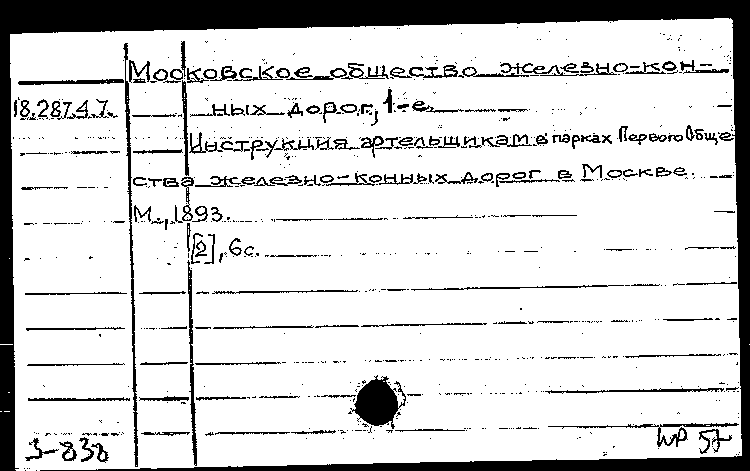 Московское общество железно-кон-
18.287.4.7. ных дорог, 1-е.
Инструкция артельщикам в парках Первого Обще
ства железно-конных дорог в Москве.
М., 1893.
[2], 6с.
3-838